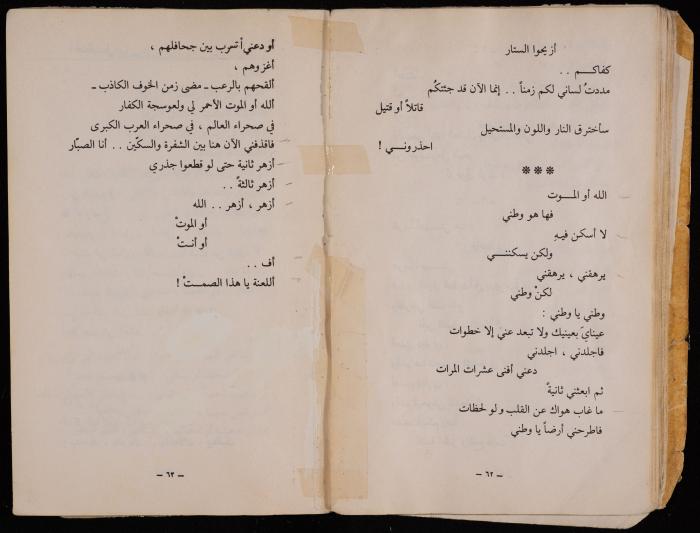 أزيحوا الستار
كفاكـــم . .
مددتُ لساني لكم زمناً . . إنما الآن قد جئتكُم
قاتلاً أو قتيل
سأخترق النار واللون والمستحيل
احذرونــي !
***
الله أو المــوت
فها هو وطني
لا أسكن فيهِ
ولكن يسكننــي
يرهقني ، يرهقني
لكنْ وطني
وطني يا وطني :
عينايَ بعينيك ولا تبعد عني إلا خطوات
فاجلدني ، اجلدني
دعني أفنى عشرات المرات
ثم ابعثني ثانيةً
ما غاب هواك عن القلب ولو لحظات
فاطرحني أرضاً يا وطني
– ٦٢ –
أو دعني أتسرب بين جحافلهم ،
أغزوهم ،
ألقحهم بالرعب ـ مضى زمن الخوف الكاذب ـ
ألله أو الموت الأحمر لي ولعوسجة الكفار
في صحراء العالم ، في صحراء العرب الكبرى
فاقذفني الآن هنا بين الشفرة والسكّين . . أنا الصبّار
أزهر ثانية حتى لو قطعوا جذري
أزهر ثالثةً . .
أزهر ، أزهر . . الله
أو الموتْ
أو أنتْ
أف . .
أللعنة يا هذا الصمــتْ !
– ٦٣ –